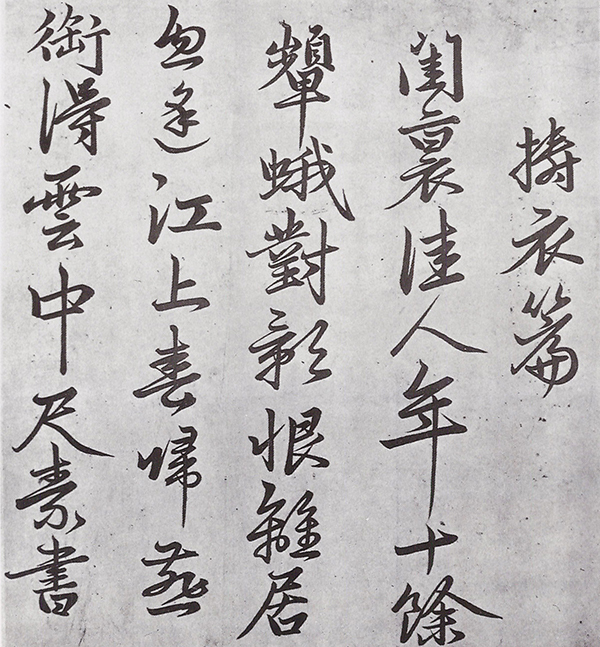 擣衣篇
閨裏佳人年十餘
顰蛾對影恨離居
忽逢江上春歸燕
銜得雲中尺素書